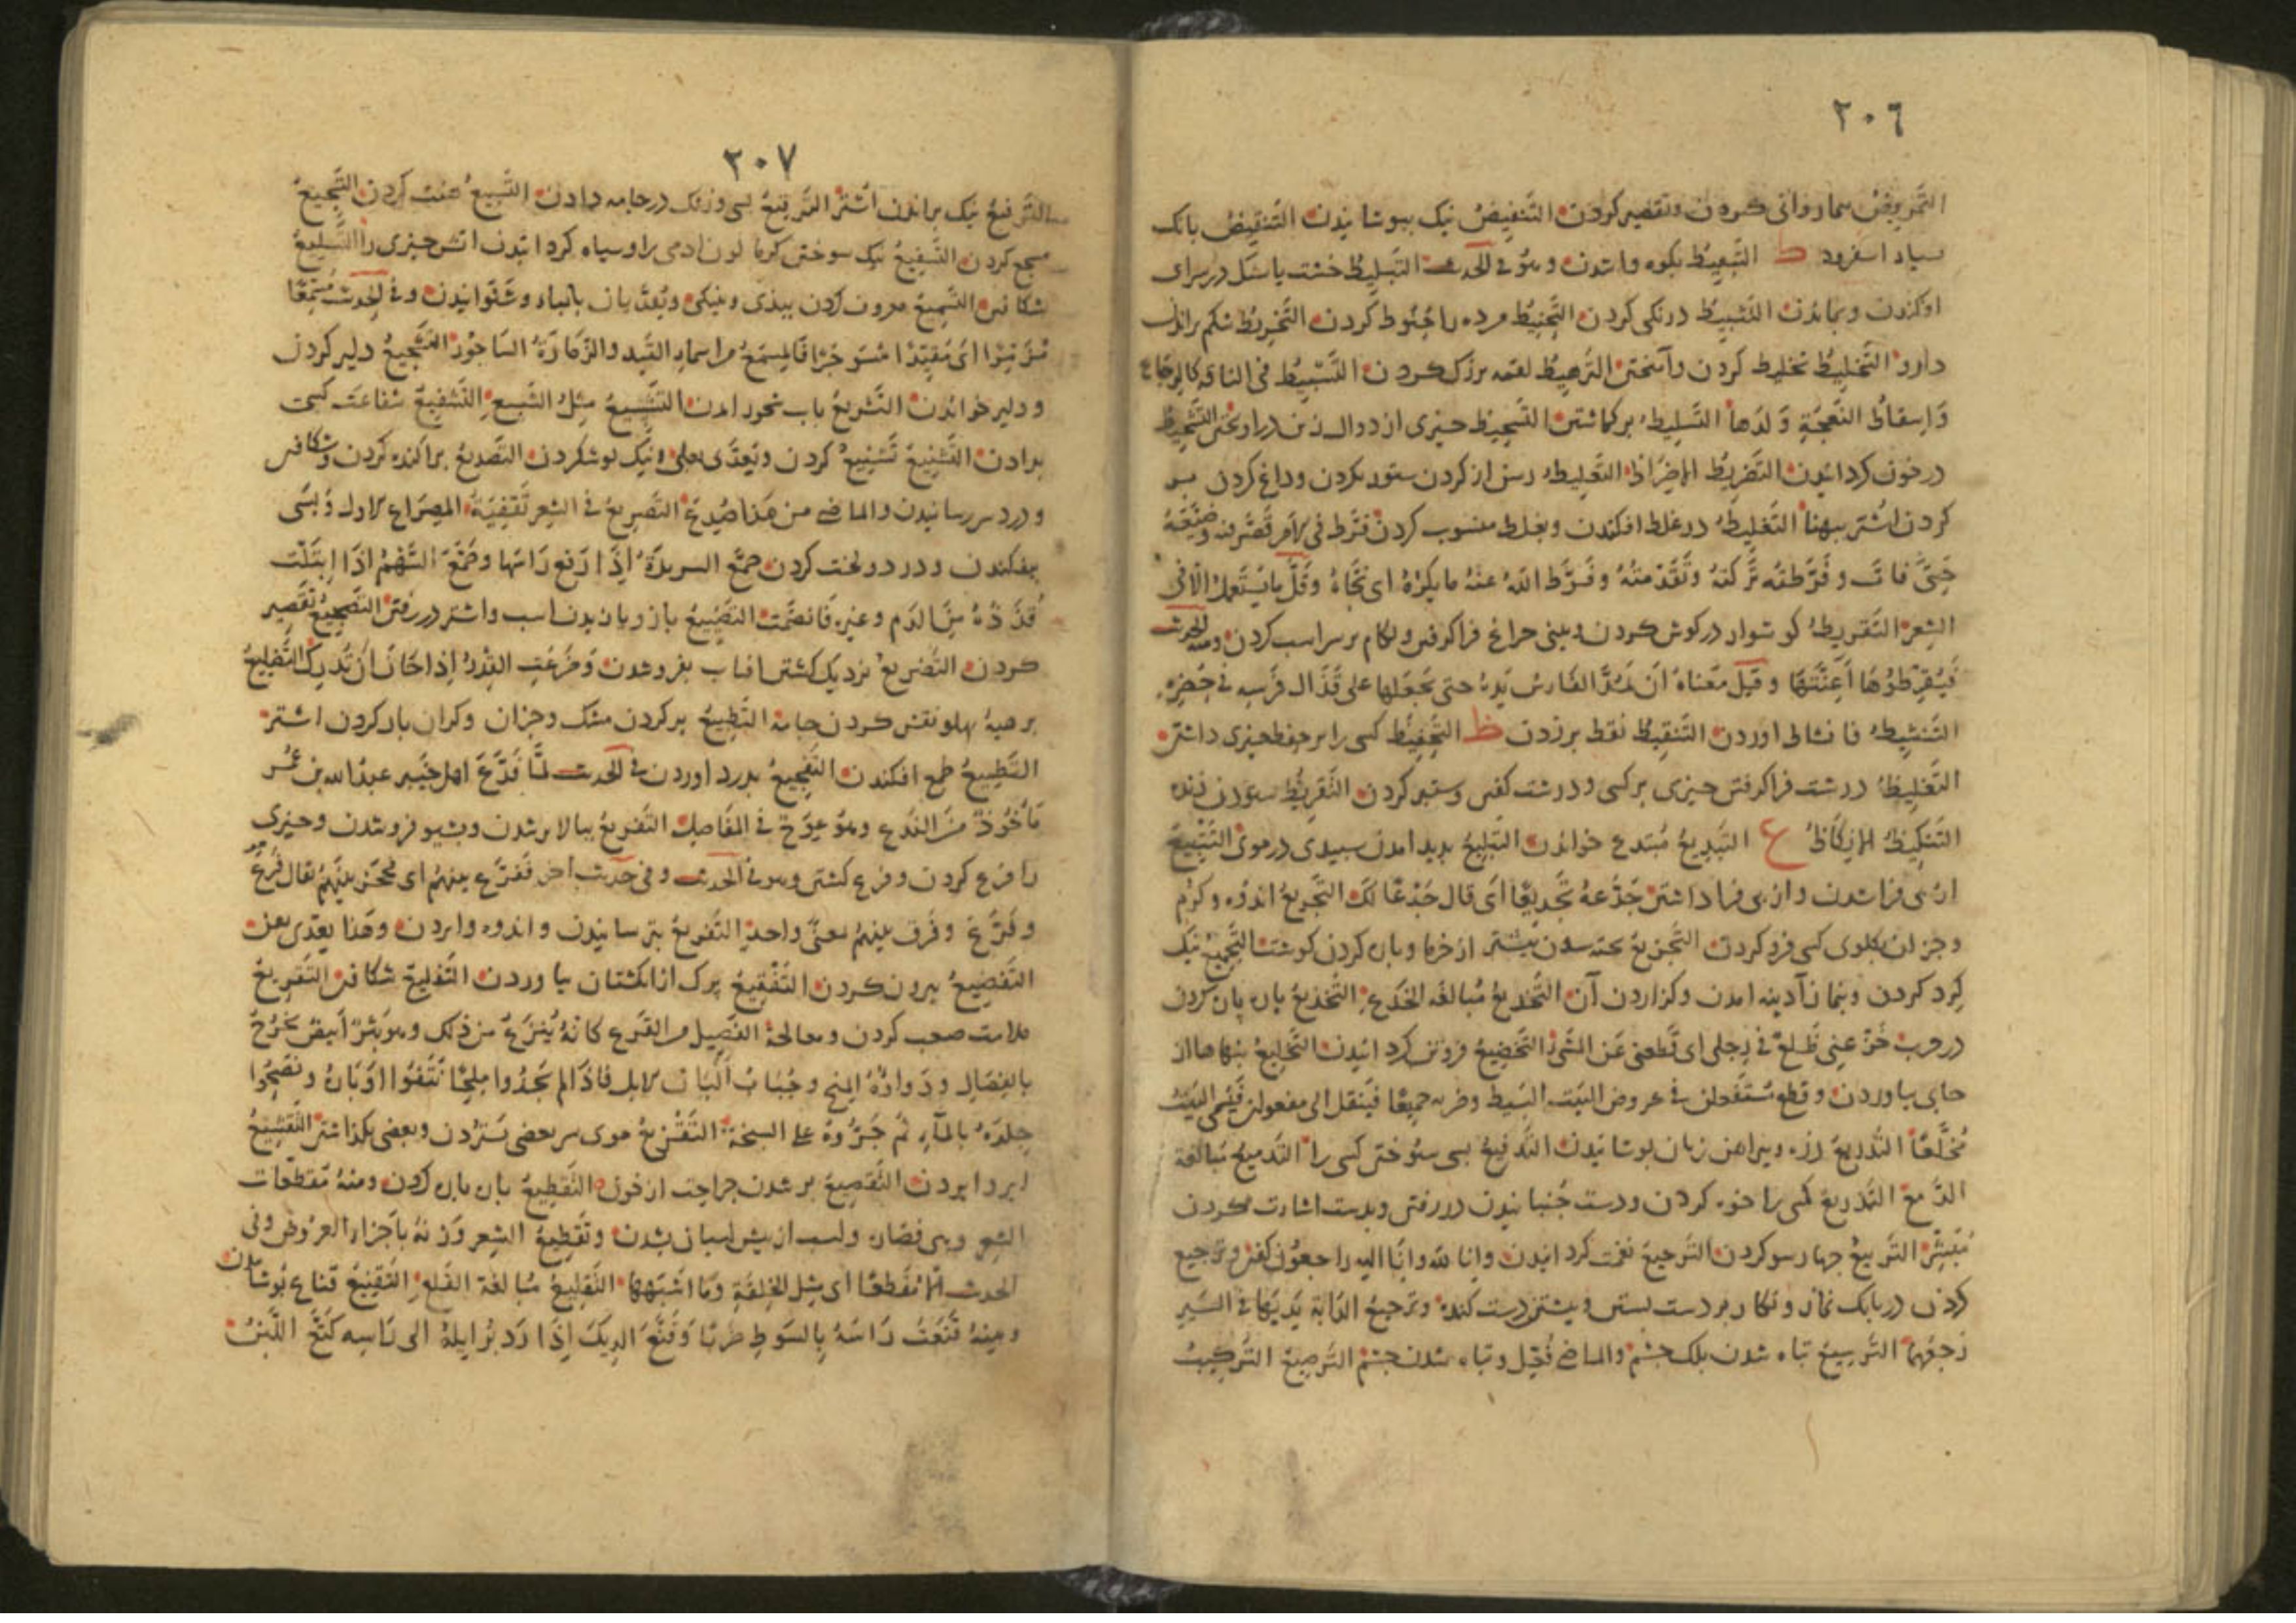 ٢٠٦
التمريض بيمارداني كردن وتقصير كردن التنفيض نيك بيوشانيدن التنقيض بانك
التبعيط نكوه واشدن وهو في الحديث التبليط خشت يا سنك در سراى
اوكندن وبماندن التثبيط درنكى كردن التحنيط مرده را حنوط كردن التخريط شكم راندن
دارو التخليط تخليط كردن وآميختن الترهيط لقمه بزرك كردن التسبيط في الناقة كالرجاع
وَاسقاط النعجة ولدها التسليط بركماشتن التسميط چيزى از دوال زين در اويختن التشحيط
در خون كردانيدن التضريط الاضراط التعليط رسن از كردن ستور بكردن وداغ كردن بر
كردن اشتر ببهنا التغليط در غلط افكندن وبغلط منسوب كردن فرّط في الامر قصّر فيه وضيّعه
حتى فات وفرّطته تركته وتقدمته وفرّط الله عنه ما يكره اى نجّاه وقلّ ما يستعمل الّا في
الشعر التقريط كوشوار در كوش كردن وبينى چراغ فرا كرفتن ولكام بر سر اسب كردن ومنه الحديث
فيقرّطوها اعنّتها وقيل معناه ان يمدّ الفارس يده حتى يجعلها على قذال فرسه في حضره
التنشيط فا نشاط اوردن التنقيط نقط بر زدن ظ التحفيظ كسى را بر حفظ چيزى داشتن
التغليظ درشت فرا كرفتن چيزى بر كسى ودرشت كفتن وستبر كردن التقريظ ستودن زنده
التنكيظ الانكاظ ع التبديع مبتدع خواندن التبليع بديد امدن سبيدى در موى التتبيع
از پى فرا شدن واز پى فرا داشتن جدّعه تجديعًا اى قال جدعًا لك التجريع اندوه وكرم
وجز ان بكلوى كسى فرو كردن التجزيع بخته شدن بيشتر از خرما وپاره كردن كوشت التجميع نيك
كرد كردن وبنماز آدينه امدن وكزاردن آن التخديع مبالغه الخدع التخذيع پاره پاره كردن
در حرب خزّعنى ظلع في رجلى اى قطعنى عن المشى التخضيع فروتن كردانيدن التخليع بتهاها از
جاى بياوردن وقطع مستفعلن في عروض البيت البسيط وضربه جميعًا فينقل الى مفعولن فيسمى البيت
مخلّعًا التدريع زره وپيراهن زنان پوشانيدن التدفيع بسى سپوختن كسى را التدميع مبالغة
الدمع التذريع كسى را خوه كردن ودست جنبانيدن در رفتن وبدست اشارت كردن
مبشّر التربيع چهارسو كردن الترجيع نغمت كردانيدن وانا لله وانّا اليه راجعون كفتن وترجيع
كردن در بانك نماز ونكار بر دست بستن وبشتن دست كنده وترجيع الدابة يديها في السير
رجعهما الترسيع تباه شدن پلك چشم والماضى فُعِل وتباه شدن چشم الترصيع التركيب
٢٠٧
الترفيع نيك براندن اشتر الترقيع بسى وژنك در جامه دادن التسبيع هفت كردن التسجيع
سجع كردن التسفيع نيك سوختن كرما لون ادمى را وسياه كردانيدن اتش چيزى را التسليع
شكافتن التسميع معروف كردن ببدى ونيكى ويعدّيان بالباء وشنوانيدن وفي الحديث مسمّعًا
مزمّرًا اى مقيّدًا مسوجرًا فالمسمع من اسماء القيد والزمّارة الساجور التشجيع دلير كردن
ودلير خواندن التشريع باب بخورد امدن التشسيع مثل الشسع التشفيع شفاعت كسى
بدادن التشنيع تشنيع كردن ويعدّى بعلى ونيك كوشكردن التصديع پراكنده كردن وشكافتن
ودرد سر رسانيدن والماضى من هذا صُدِّع التصريع في الشعر تقفية المصراع الاول وبسى
بيفكندن ودر دو لخت كردن صمّع السريدة اذا رفع رأسها وصمّع السهم اذا ابتلّت
قذذه من الدم وغيره فانضمت التضبيع بازو يازيدن اسب واشتر در رفتن التضجيع تقصير
كردن التضريع نزديك كشتن افتاب بفروشدن وضرّعت القدر اذا حان ان تدرك التضليع
بر هيئه پهلو نقش كردن جامه التطبيع پر كردن مشك وجزان وكران بار كردن اشتر
التطميع طمع افكندن التفجيع بدرد اوردن في الحديث لمّا فدّع اهل خيبر عبد الله بن عمر
مأخوذ من الفدع وهو عوج في المفاصل التفريع ببالا برشدن وبشيو فروشدن وچيزى
را فرع كردن وفرع كشتن وهو في الحديث وفي حديث اخر ففرّع بينهم اى حجز بينهم يقال فرّع
وفرّع وفرق بينهم بمعنى واحد التفزيع بترسانيدن واندوه وابردن وهذا يعدّى بعن
التفصيع بيرون كردن التفقيع ترك از انكشتان بياوردن التفليع شكافتن التقريع
ملامت صعب كردن ومعالجة الفصيل من القرع كانه ينزع من ذلك وهو بثر ابيض يخرج
بالفصال ودواؤه الملح وجباب البان الابل فاذا لم يجدوا ملحًا نتفوا اوباره ونضحوا
جلده بالماء ثم جرّوه على السبخة التقزيع موى سر بعضى ستردن وبعضى بكذاشتن التقشيع
ابر وابردن التقصيع پر شدن جراحت از خون التقطيع پاره پاره كردن ومنه مقطعات
الشعر وهى قصاره واسب از پيش اسبان بشدن وتقطيع الشعر وزنه باجزاء العروض وفي
الحديث الّا مقطعًا اى مثل الحلقة وما اشبهها التقليع مبالغة القلع التقنيع قناع پوشانيدن
ومنه قنّعت رأسه بالسوط ضربًا وقنّع الديك اذا ردّ برايله الى رأسه كثّع اللبن